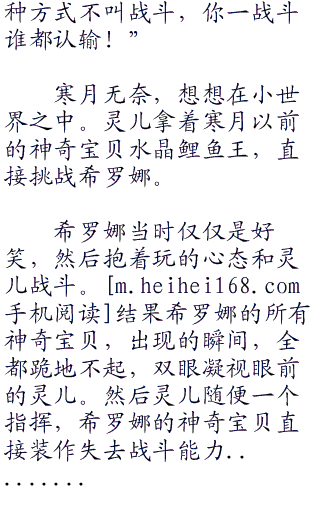 种方式不叫战斗，你一战斗
谁都认输！”
寒月无奈，想想在小世
界之中。灵儿拿着寒月以前
的神奇宝贝水晶鲤鱼王，直
接挑战希罗娜。
希罗娜当时仅仅是好
笑，然后抱着玩的心态和灵
儿战斗。[m.heihei168.com
手机阅读]结果希罗娜的所有
神奇宝贝，出现的瞬间，全
都跪地不起，双眼凝视眼前
的灵儿。然后灵儿随便一个
指挥，希罗娜的神奇宝贝直
接装作失去战斗能力..
.......